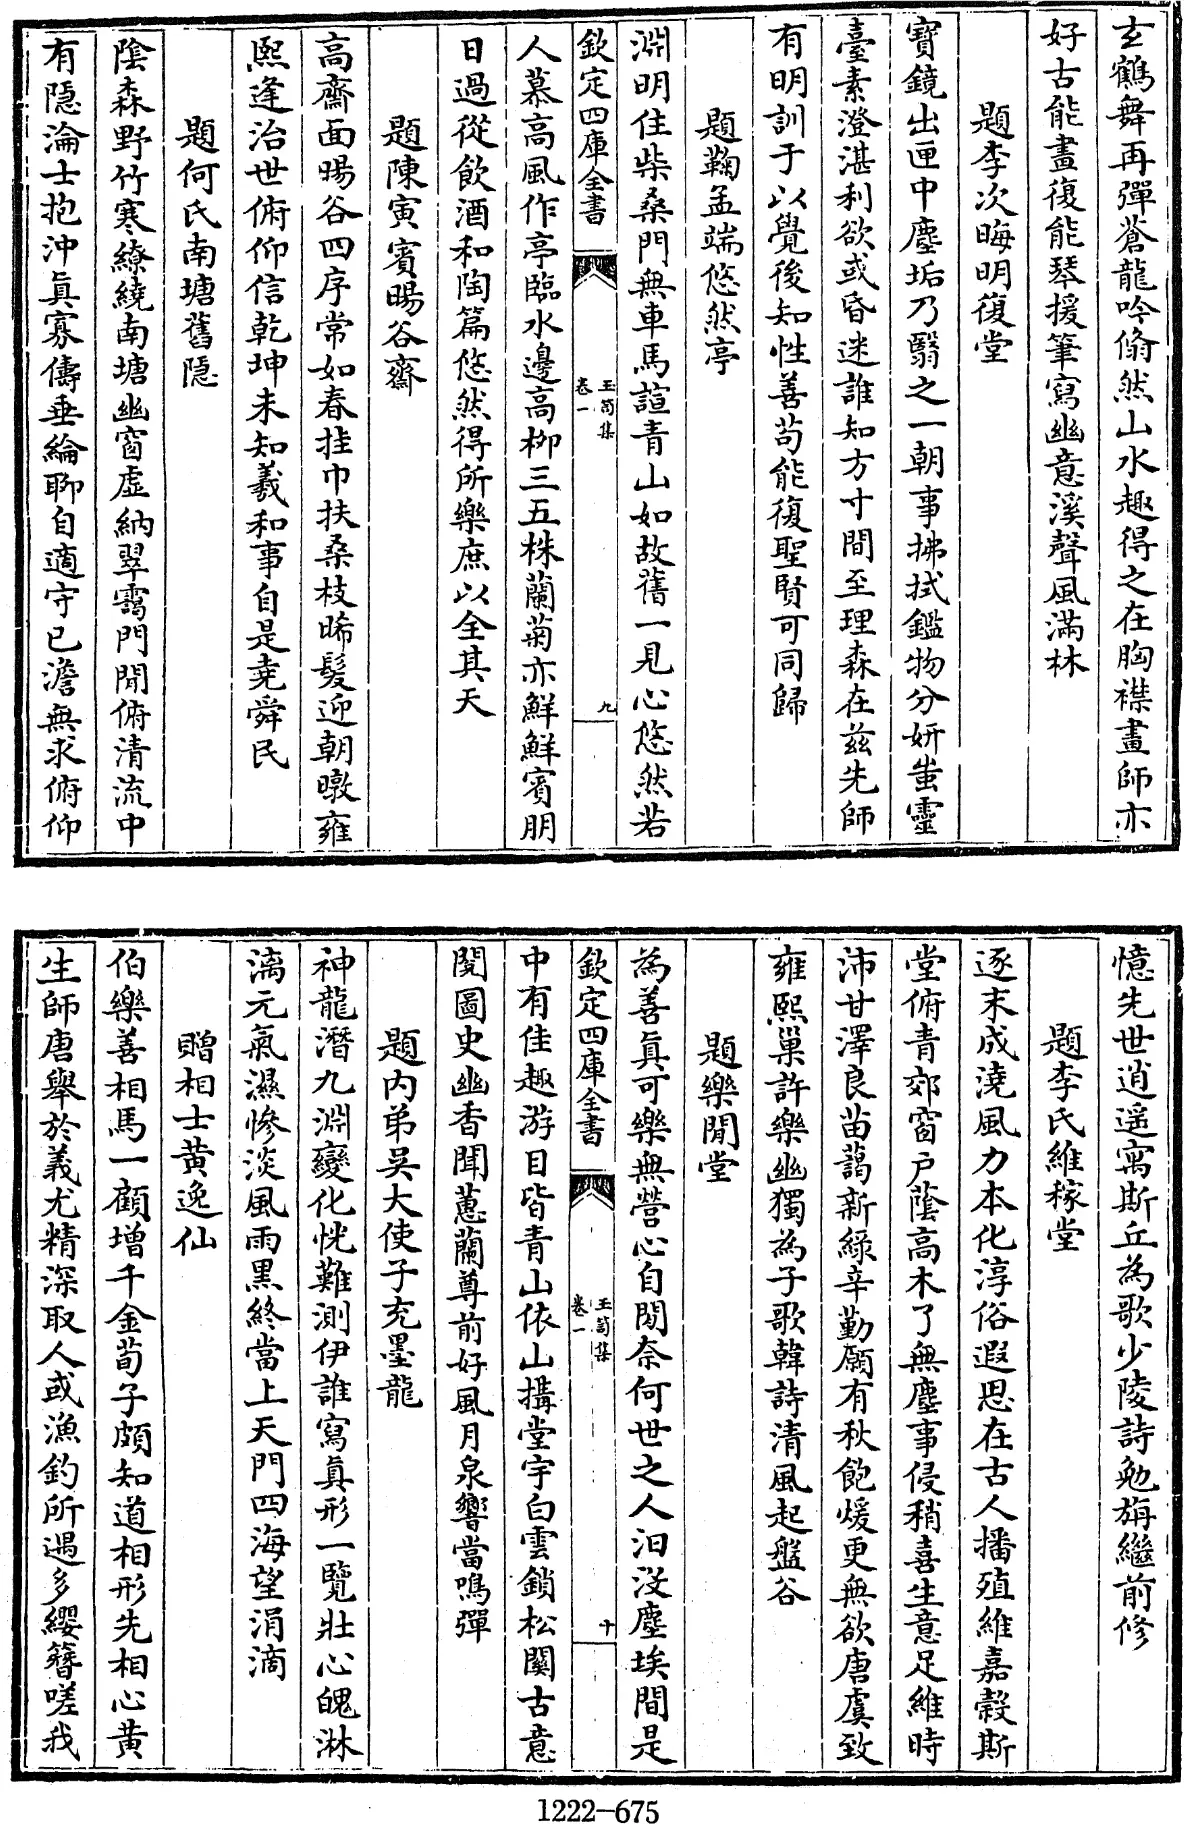 玄鶴舞再彈蒼龍吟翛然山水趣得之在胸襟畫師亦
好古能畫復能琴援筆寫幽意溪聲風滿林
題李次晦明復堂
寶鏡出匣中塵垢乃翳之一朝事拂拭鑑物分妍蚩靈
臺素澄湛利欲或昏迷誰知方寸間至理森在兹先師
有明訓于以覺後知性善苟能復聖賢可同歸
題鞠孟端悠然亭
淵明住柴桑門無車馬諠青山如故舊一見心悠然若
欽定四庫全書
玉笥集
卷一
九
人慕高風作亭臨水邊高柳三五株蘭菊亦鮮鮮賓朋
日過從飲酒和陶篇悠然得所樂庶以全其天
題陳寅賓暘谷齋
高齋面暘谷四序常如春挂巾扶桑枝晞髮迎朝暾雍
熙逢治世俯仰信乾坤未知羲和事自是堯舜民
題何氏南塘舊隱
陰森野竹寒繚繞南塘幽窗虛納翠靄門閒俯清流中
有隱淪士抱沖真寡儔垂綸聊自適守已澹無求俯仰
憶先世逍遥寓斯丘為歌少陵詩勉旃繼前修
題李氏維稼堂
逐末成澆風力本化淳俗遐思在古人播殖維嘉穀斯
堂俯青郊窗户蔭高木了無塵事侵稍喜生意足維時
沛甘澤良苗藹新緑辛勤願有秋飽煖更無欲唐虞致
雍熙巢許樂幽獨為子歌韓詩清風起盤谷
題樂閒堂
為善真可樂無營心自閒奈何世之人汩没塵埃間是
欽定四庫全書
玉笥集
卷一
十
中有佳趣游目皆青山依山搆堂宇白雲鎖松關古意
閱圖史幽香聞蕙蘭尊前好風月泉響當鳴彈
題内弟吴大使子充墨龍
神龍潛九淵變化恍難測伊誰寫真形一覽壯心魄淋
漓元氣濕慘淡風雨黑終當上天門四海望涓滴
贈相士黄逸仙
伯樂善相馬一顧增千金荀子頗知道相形先相心黄
生師唐舉於義尤精深取人或漁釣所遇多纓簪嗟我
1222-675